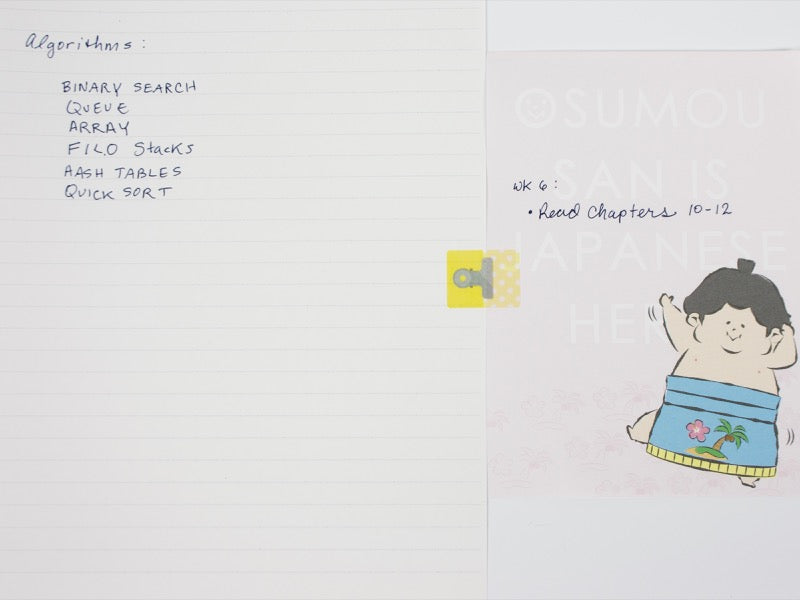 Algorithms:
BINARY SEARCH
QUEUE
ARRAY
FILO Stacks
HASH TABLES
QUICK SORT
OSUMOU
SAN IS
JAPANESE
HER
WK 6:
• Read Chapters 10-12